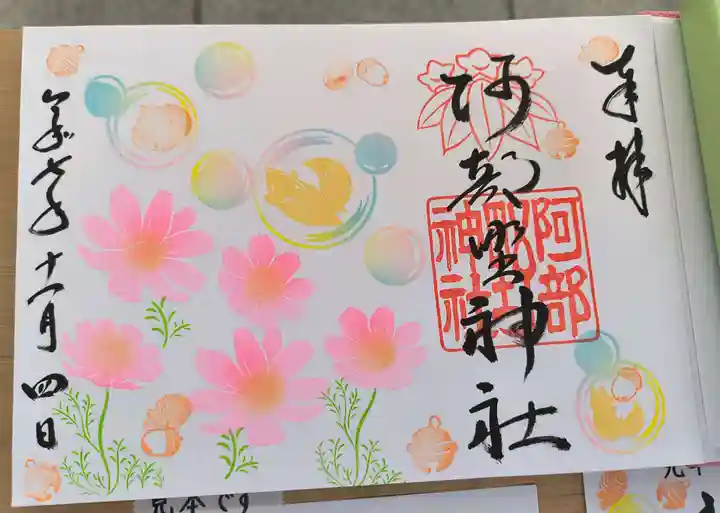 奉拝
阿部野神社
阿部
野
神社
令和七年十一月四日
見本です
見本